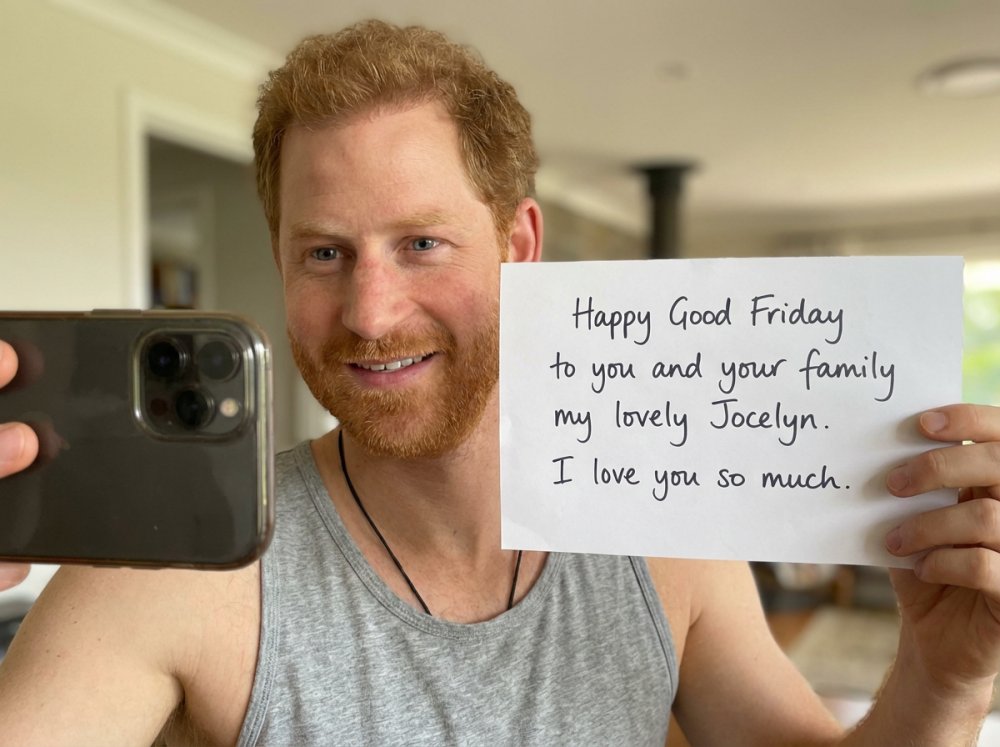 Happy Good Friday
to you and your family
my lovely Jocelyn.
I love you so much.